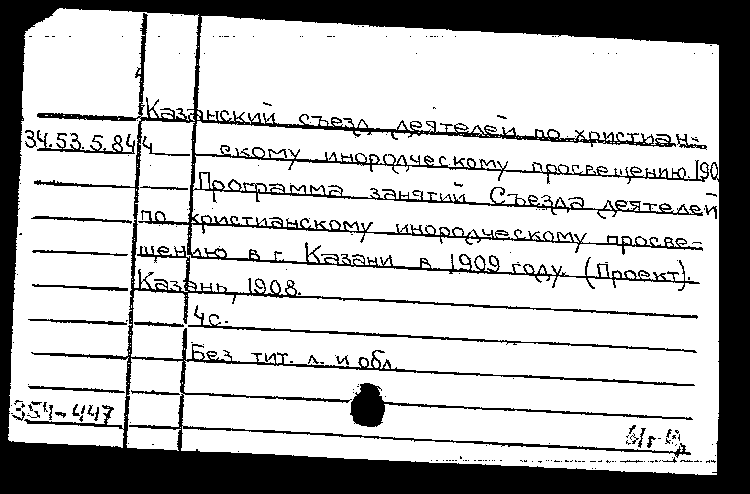 Казанский съезд деятелей по христиан-
34.53.5.84 4 скому инородческому просвещению. 190
Программа занятий Съезда деятелей
по христианскому инородческому просве-
щению в г. Казани в 1909 году. (Проект).
Казань, 1908.
4 с.
Без тит. л. и обл.
354-447